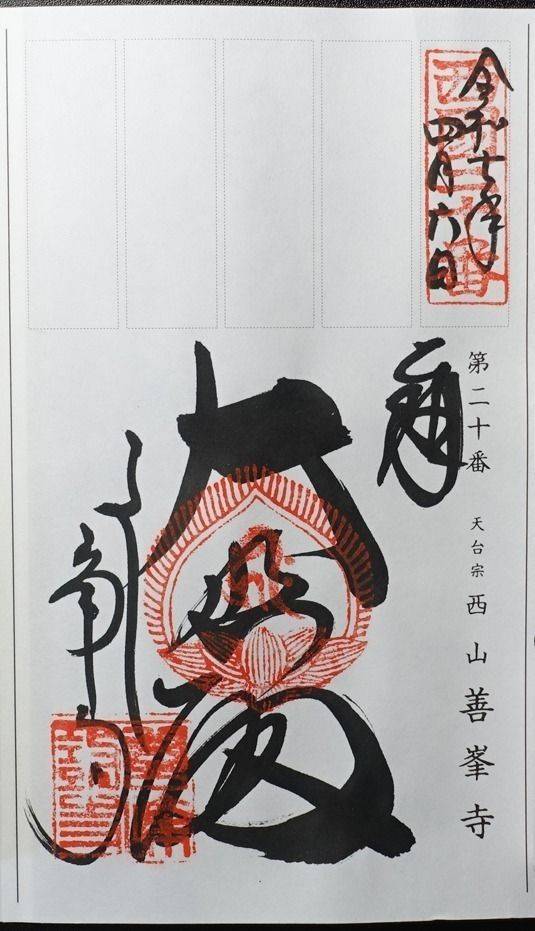 令和七年
四月六日
西國二十番
第二十番 天台宗 西山善峯寺
奉拝
大悲殿
善峯寺